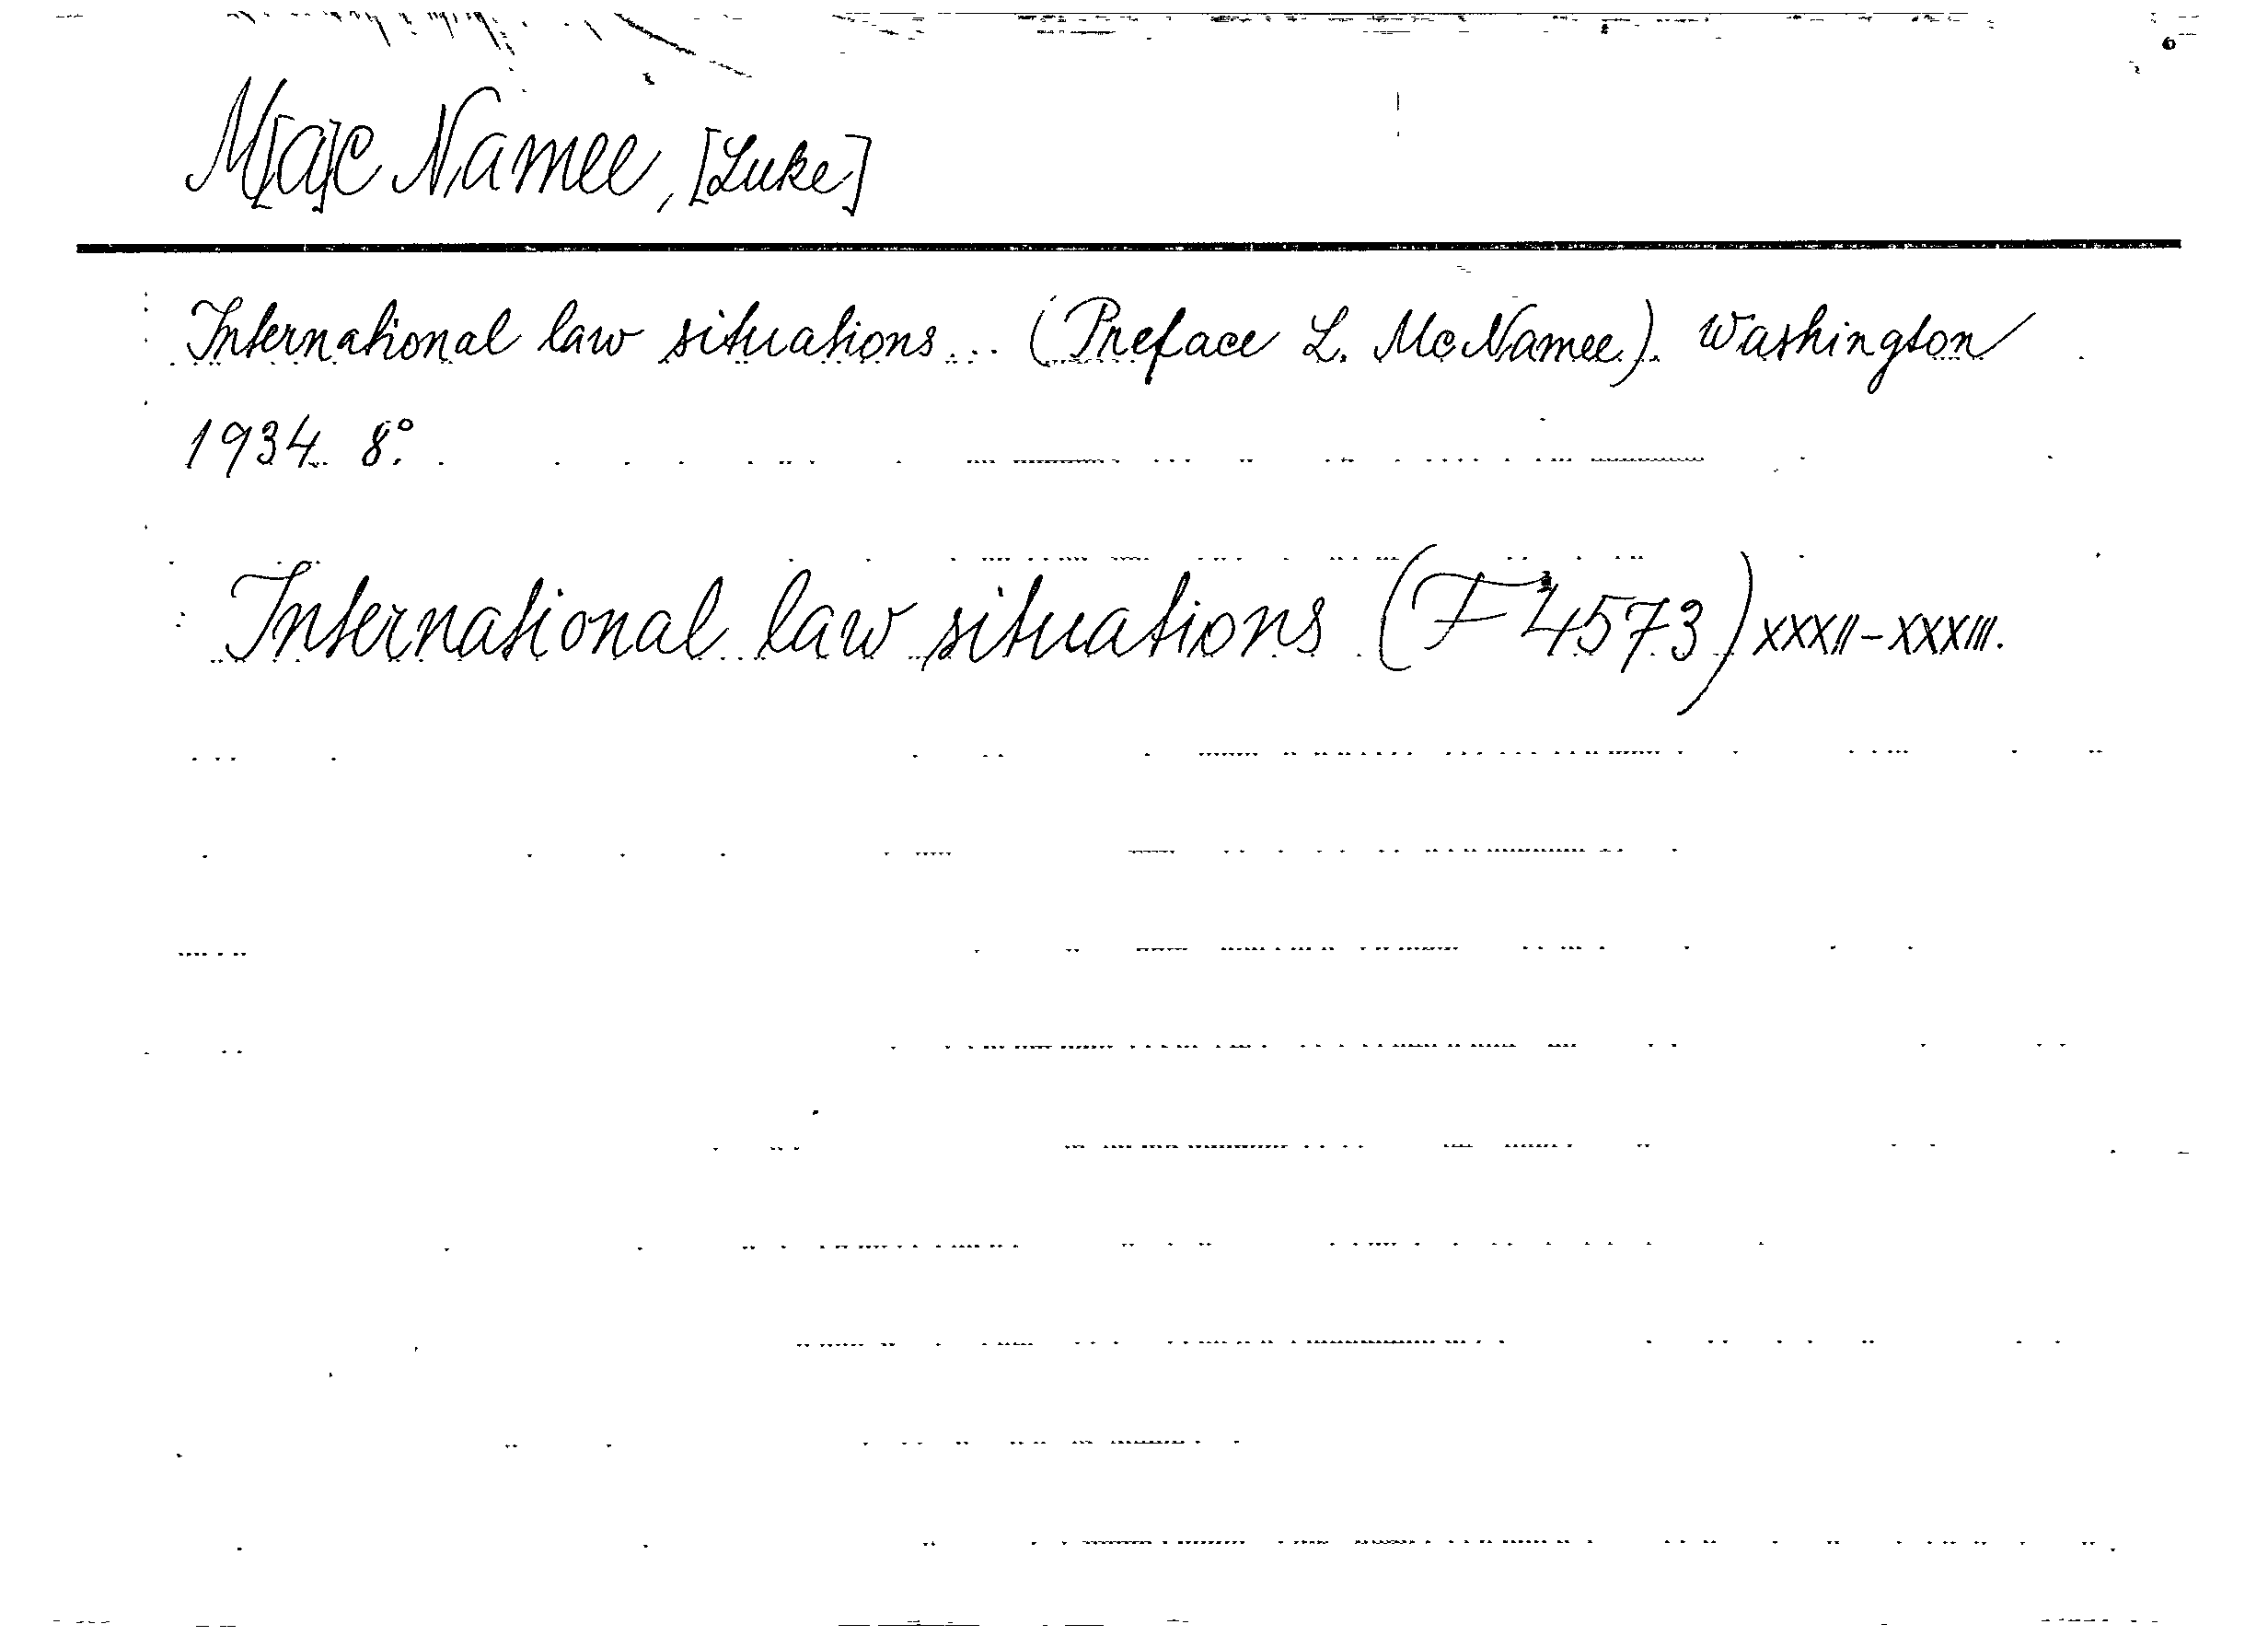 M[a]c Namee, [Luke]
International law situations... (Preface L. McNamee). Washington
1934. 8°.
International law situations (F 4573) XXXII-XXXIII.